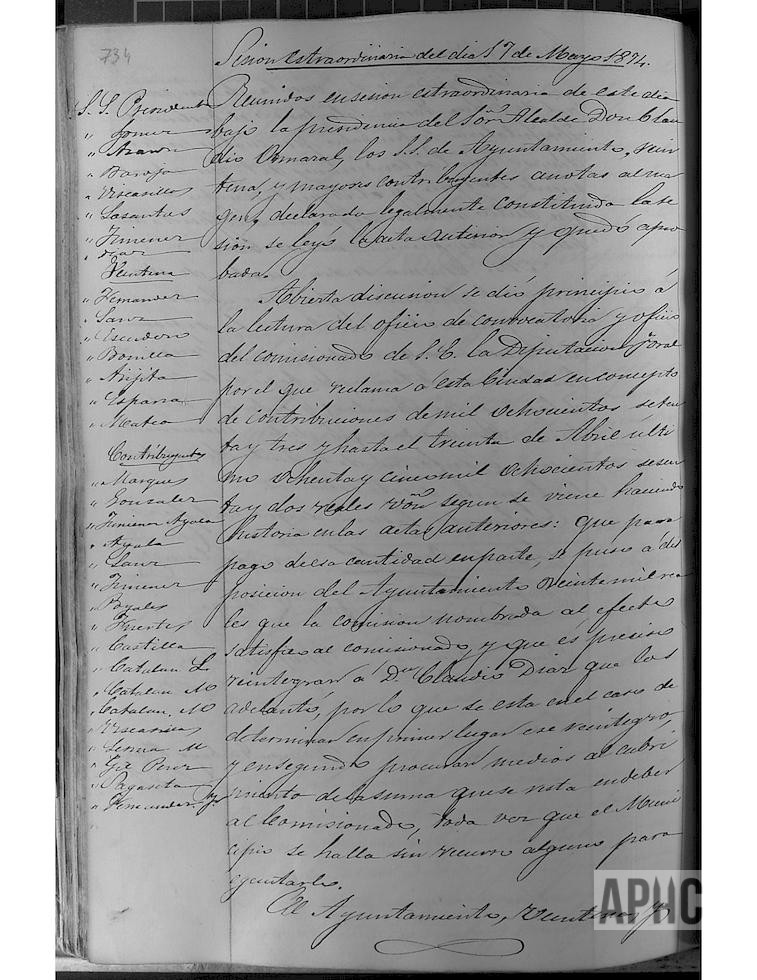 734
Sesion estraordinaria del dia 17 de Mayo 1874.
S. S. Presidente
" Gomez
" Azana
" Baroja
" Viscasillas
" Lasantas
" Jimenez
" Diaz
Veintena
" Fernandez
" Sanz
" Escudero
" Bonilla
" Arijita
" Esparza
" Mateo
Contribuyentes
" Marques
" Gonzalez
" Jimenez Ayala
" Ayala
" Sanz
" Jimenez
" Poyales
" Fuertes
" Castilla
" Catalan L.
" Catalan M
" Catalan. M
" Lerma M
" Gil Perez
" Pagasota
" Fernandez
Reunidos en sesion estraordinaria de este dia
bajo la presidencia del Sor. Alcalde Don Clau
dio Osmaral, los S.S. de Ayuntamiento, vein
tena, y mayores contribuyentes anotas al mar
gen, declarada legalmente constituida la se
sion se leyó la acta anterior y quedó apro
bada.
Abierta discusion se dió principio á
la lectura del oficio de convocatoria y oficio
del comisionado de S. E. la Diputacion foral
por el que reclama a esta Ciudad en concepto
de contribuciones de mil ochocientos seten
ta y tres y hasta el treinta de Abril últi
mo ochenta y cinco mil ochocientos sesen
ta y dos reales von. segun se viene haciendo
historia en las actas anteriores: que para
pago de esa cantidad en parte, se puso á dis
posicion del Ayuntamiento veinte mil rea
les que la comision nombrada al efecto
satisfizo al comisionado, y que es preciso
reintegrar á Dn. Claudio Diaz que los
adelantó, por lo que se esta en el caso de
determinar en primer lugar ese reintegro,
y en segundo procurar medios al cubri
miento de la suma que se resta en deber
al Comisionado, toda vez que el Muni
cipio se halla sin recurso alguno para
ejecutarlo.
El Ayuntamiento, Veintena, y
APHC